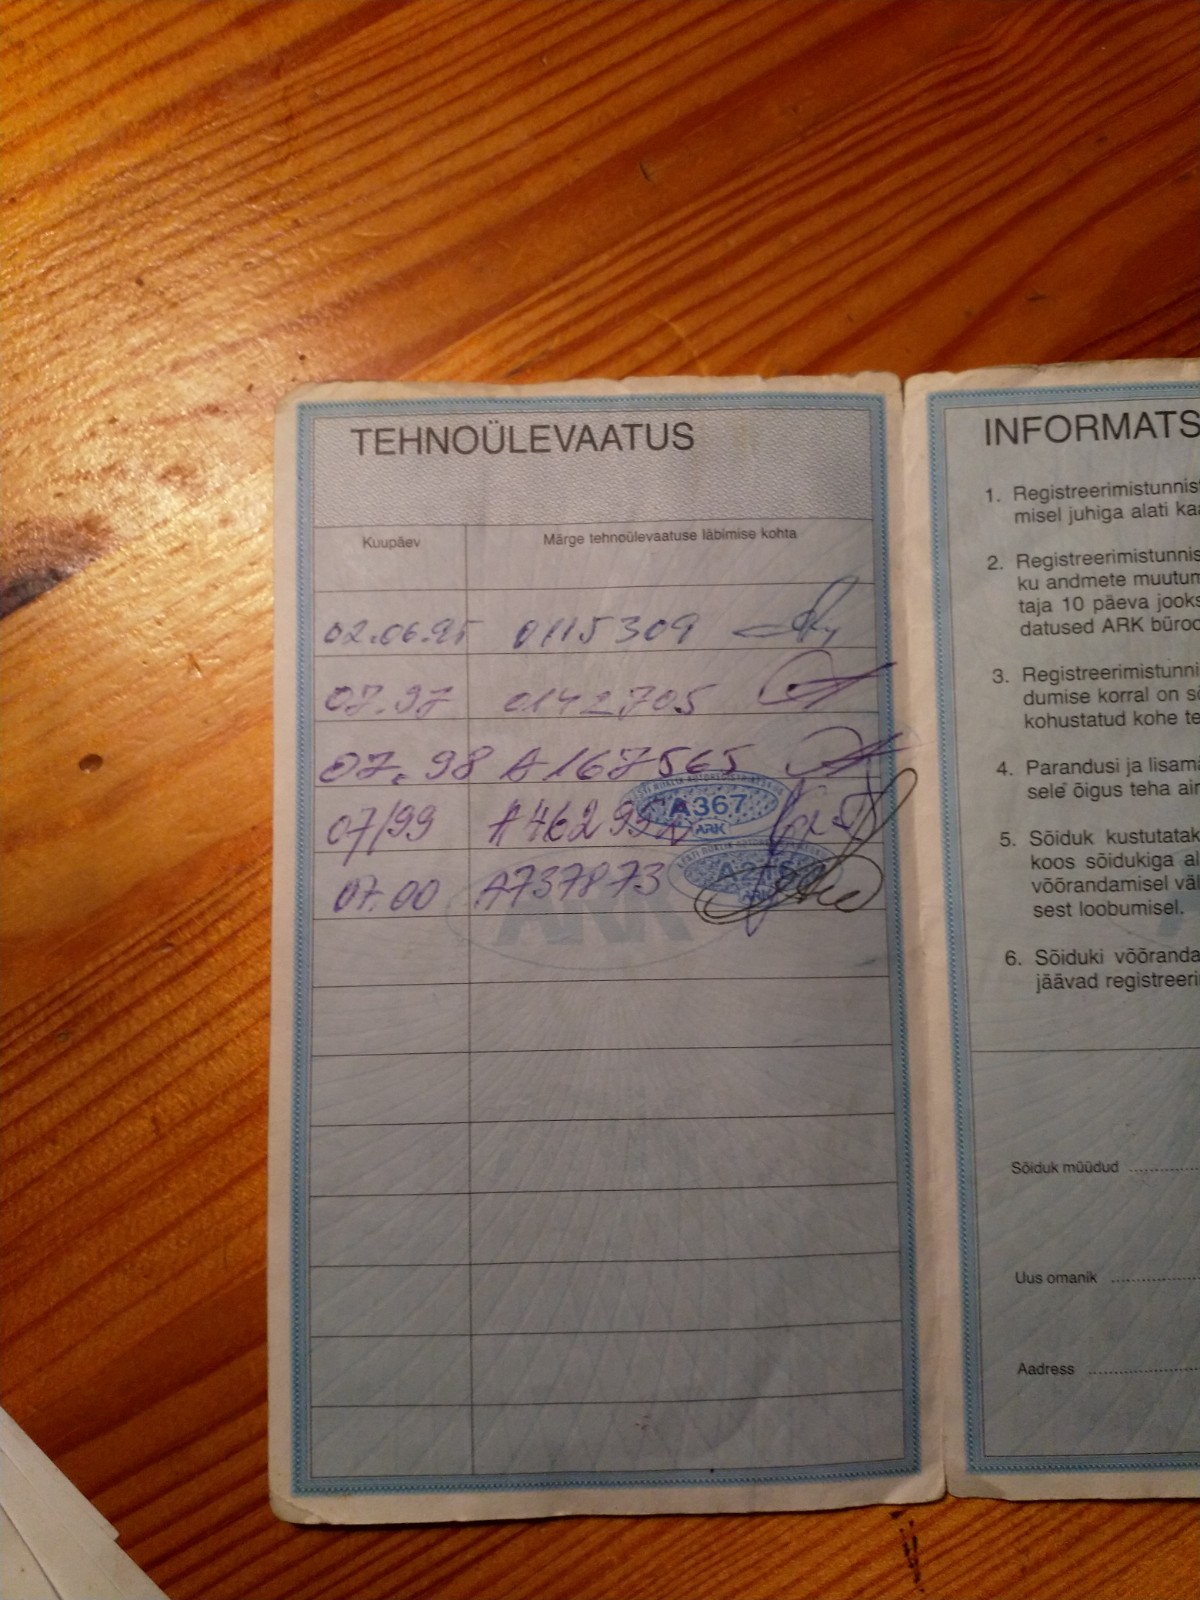 TEHNOÜLEVAATUS
Kuupäev Märge tehnoülevaatuse läbimise kohta
02.06.95 0115309
07.97 0142705
07.98 A167565
07/99
A367
ARK
07.00 A737873
ARK
ARK
INFORMATS
1. Registreerimistunnist
misel juhiga alati kaa
2. Registreerimistunnis
ku andmete muutum
taja 10 päeva jooks
datused ARK büroo
3. Registreerimistunni
dumise korral on sõ
kohustatud kohe te
4. Parandusi ja lisama
sele õigus teha ain
5. Sõiduk kustutatak
koos sõidukiga al
võõrandamisel väl
sest loobumisel.
6. Sõiduki võõranda
jäävad registreeri
Sõiduk müüdud
Uus omanik
Aadress